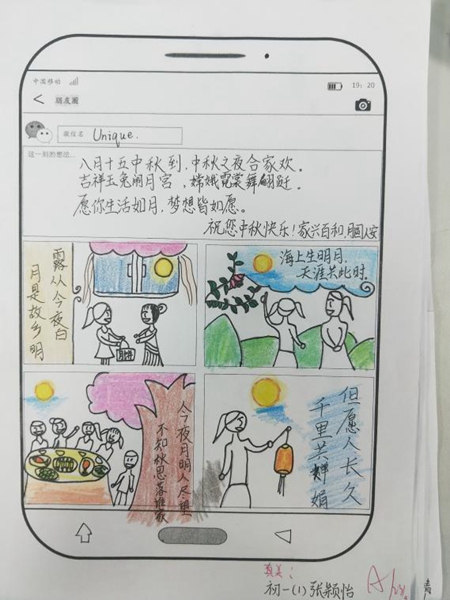 中国移动
19:20
<
朋友圈
微信名
Unique.
这一刻的想法...
八月十五中秋到,中秋之夜合家欢。
吉祥玉兔闹月宫,嫦娥霓裳舞翩跹。
愿你生活如月,梦想皆如愿。
祝您中秋快乐!家兴百和,月圆人安
露从今夜白
月是故乡明
海上生明月,
天涯共此时.
今夜月明人尽望
不知秋思落谁家
但愿人长久
千里共婵娟
真美!
初一(1)张颖怡